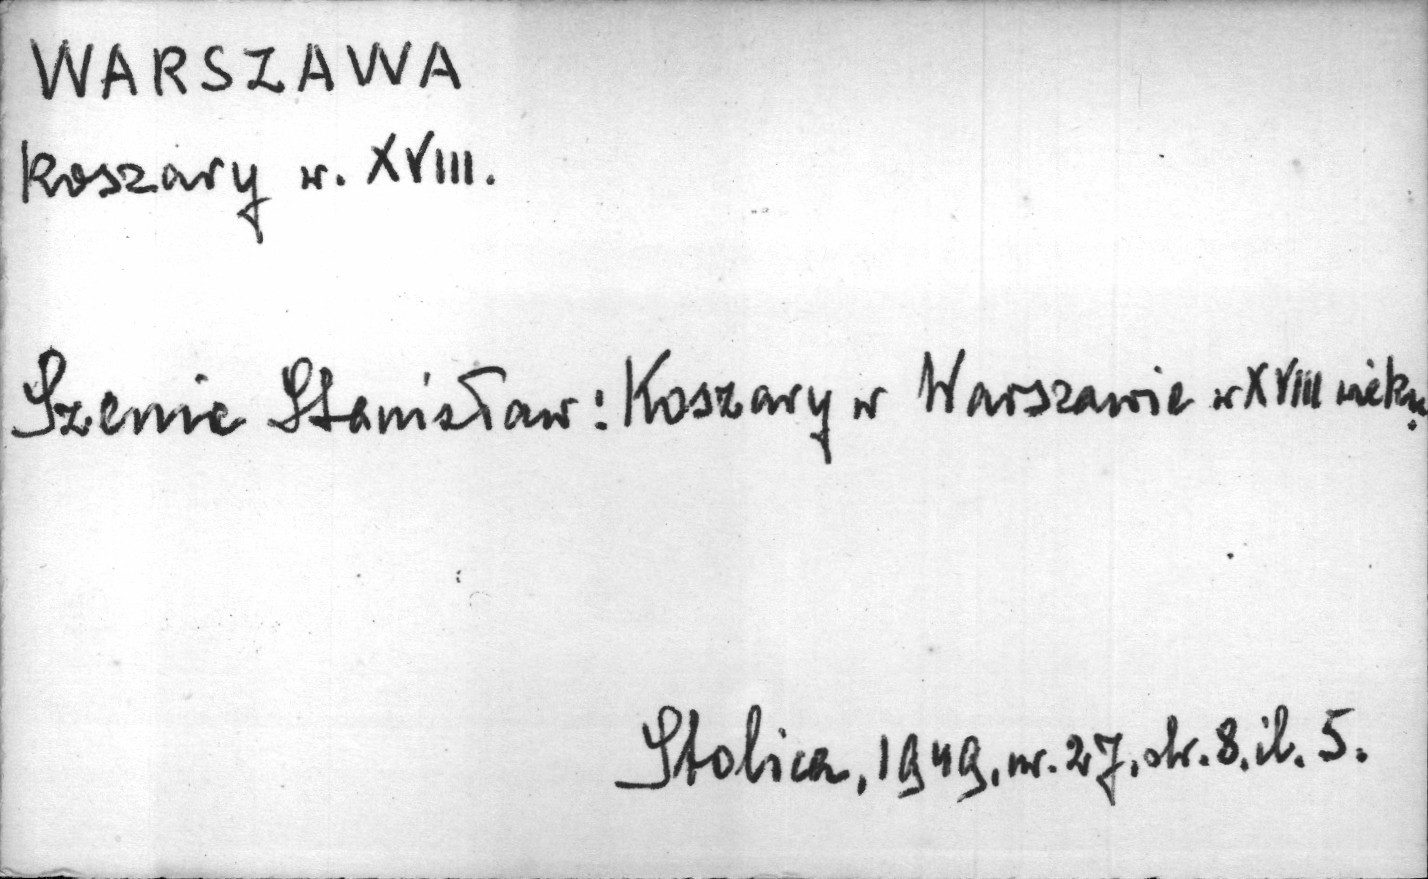 WARSZAWA
Koszary w. XVIII.
Szenic Stanisław: Koszary w Warszawie w XVIII wieku.
Stolica, 1949, nr. 27, str. 8, il. 5.